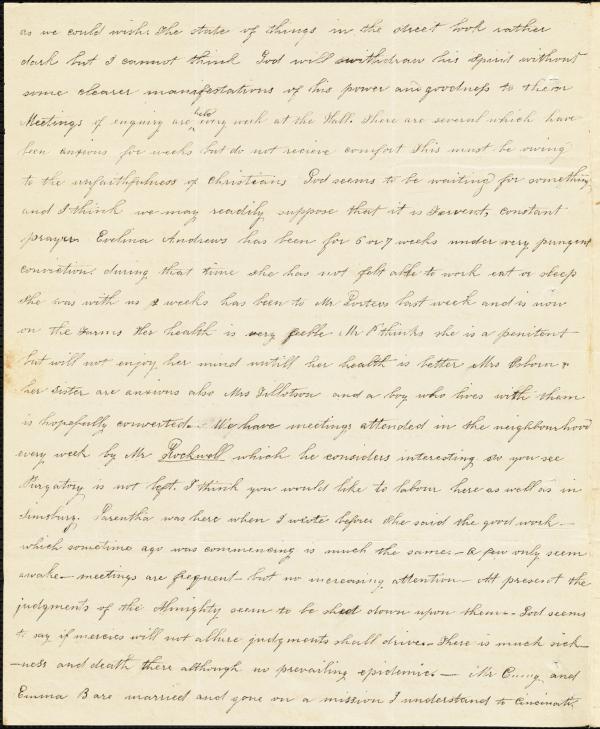 as we could wish. The state of things in the street look rather
dark but I cannot think God will withdraw his spirit without
some clearer manifestations of his power and goodness to them
Meetings of enquiry are held every week at the Hall. There are several which have
been anxious for weeks but do not recieve comfort This must be owing
to the unfaithfulness of Christians God seems to be waiting for something
and I think we may readily suppose that it is fervent, constant
prayer. Evelina Andrews has been for 6 or 7 weeks under very pungent
conviction. during that time she has not felt able to work eat or sleep
She was with us weeks has been to Mr Porters last week and is now
on the Farms Her health is very feeble Mr P thinks she is a penitent
but will not enjoy her mind untill her health is better Mrs Osborn &
her sister are anxious also Mrs Tillotson and a boy who lives with them
is hopefully converted. We have meetings attended in the neighbourhood
every week by Mr Rockwell which he considers interesting so you see
Purgatory is not left. I think you would like to labour here as well as in
Simsbury. Parentha was here when I wrote before She said the good work -
which sometime ago was commencing is much the same - a few only seem
awake - meetings are frequent - but no increasing attention - At present the
judgments of the Almighty seem to be shed down upon them - God seems
to say if mercies will not allure judgments shall drive - There is much sick-
-ness and death there although no prevailing epidemic. - Mr and
Emma B are married and gone on a mission I understand to Cincinati.